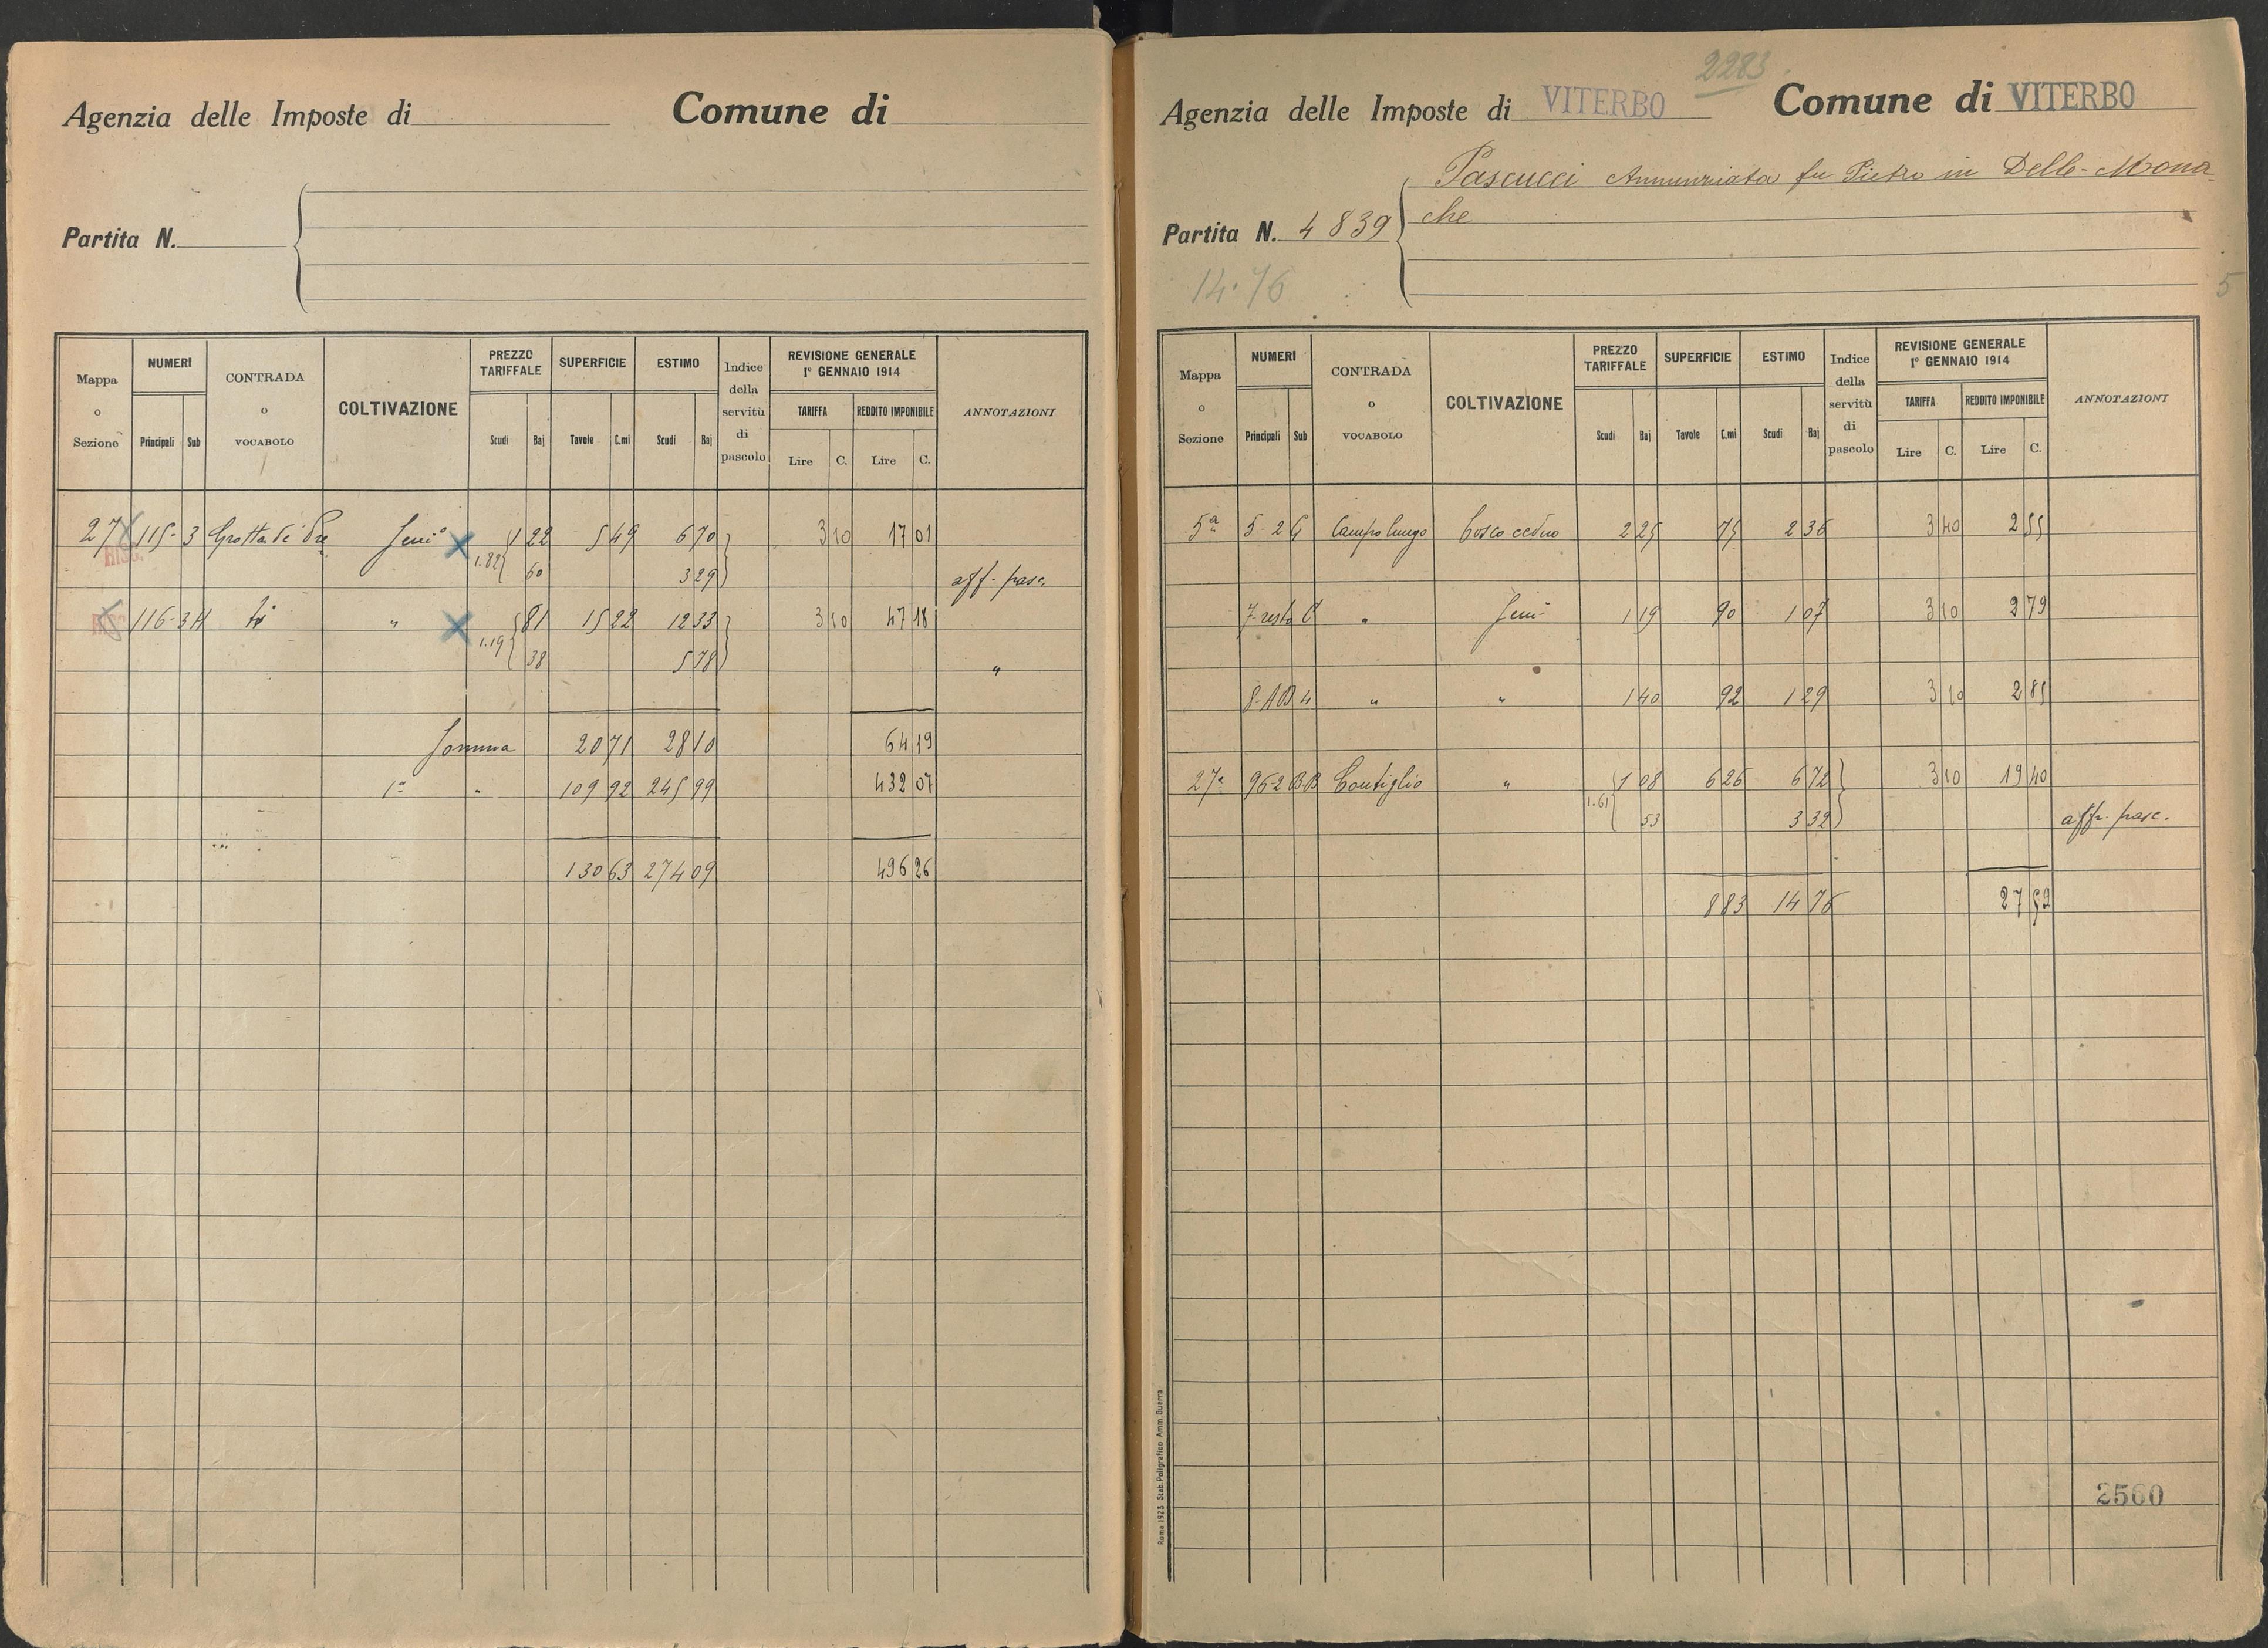 Agenzia delle Imposte di Comune di
Partita N.
Mappa o Sezione NUMERI Principali Sub CONTRADA o VOCABOLO COLTIVAZIONE PREZZO TARIFFALE Scudi Baj SUPERFICIE Tavole C.mi ESTIMO Scudi Baj Indice della servitù di pascolo REVISIONE GENERALE 1° GENNAIO 1914 TARIFFA Lire C. REDDITO IMPONIBILE Lire C. ANNOTAZIONI
27 115-3 Grotta di Pre Semi° 1 22 5 49 6 70 3 10 17 01
RISC.
1.82 60 3 29 aff. pasc.
116-3 H id " 81 15 22 12 33 3 10 47 18
1.19 38 5 78 "
Somma 20 71 28 10 64 19
1a " 109 92 245 99 432 07
130 63 274 09 496 26
2283
Agenzia delle Imposte di VITERBO Comune di VITERBO
Pascucci Annunziata fu Pietro in Delle-Mona-
Partita N. 4839 che
14.76
5
Mappa o Sezione NUMERI Principali Sub CONTRADA o VOCABOLO COLTIVAZIONE PREZZO TARIFFALE Scudi Baj SUPERFICIE Tavole C.mi ESTIMO Scudi Baj Indice della servitù di pascolo REVISIONE GENERALE 1° GENNAIO 1914 TARIFFA Lire C. REDDITO IMPONIBILE Lire C. ANNOTAZIONI
5a 5-2 G Campo lungo bosco ceduo 2 25 75 2 36 3 40 2 55
7 resto " Semi 1 19 90 1 07 3 10 2 79
8- " " 1 40 92 1 29 3 10 2 85
27a 96-2 BB Contiglio " 1 08 6 26 6 72 3 10 19 40
1.61 53 3 32 affr. pasc.
8 83 14 76 27 59
2560
Roma 1923 Stab. Poligrafico Amm. Guerra